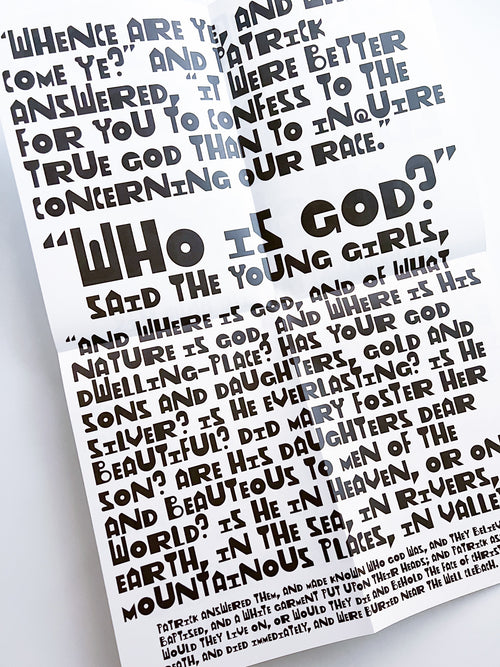 AND
"WHENCE ARE YE, PATRICK
COME YE?" AND WERE BETTER
ANSWERED, "IT CONFESS TO THE
FOR YOU TO CONFESS TO THE
TRUE GOD THAN TO INQUIRE
CONCERNING OUR RACE."
"WHO IS GOD?"
SAID THE YOUNG GIRLS,
"AND WHERE IS GOD, AND OF WHAT
NATURE IS GOD, AND WHERE IS HIS
DWELLING-PLACE? HAS YOUR GOD
SONS AND DAUGHTERS, GOLD AND
SILVER? IS HE EVERLASTING? IS HE
BEAUTIFUL? DID MARY FOSTER HER
SON? ARE HIS DAUGHTERS DEAR
AND BEAUTEOUS TO MEN OF THE
WORLD? IS HE IN HEAVEN, OR ON
EARTH, IN THE SEA, IN RIVERS,
MOUNTAINOUS PLACES, IN VALLE
PATRICK ANSWERED THEM, AND MADE KNOWN WHO GOD WAS, AND THEY BELIEV
BAPTISED, AND A WHITE GARMENT PUT UPON THEIR HEADS; AND PATRICK AS
WOULD THEY LIVE ON, OR WOULD THEY DIE AND BEHOLD THE FACE OF CHRIS
DEATH, AND DIED IMMEDIATELY, AND WERE BURIED NEAR THE WELL CLEBACH.